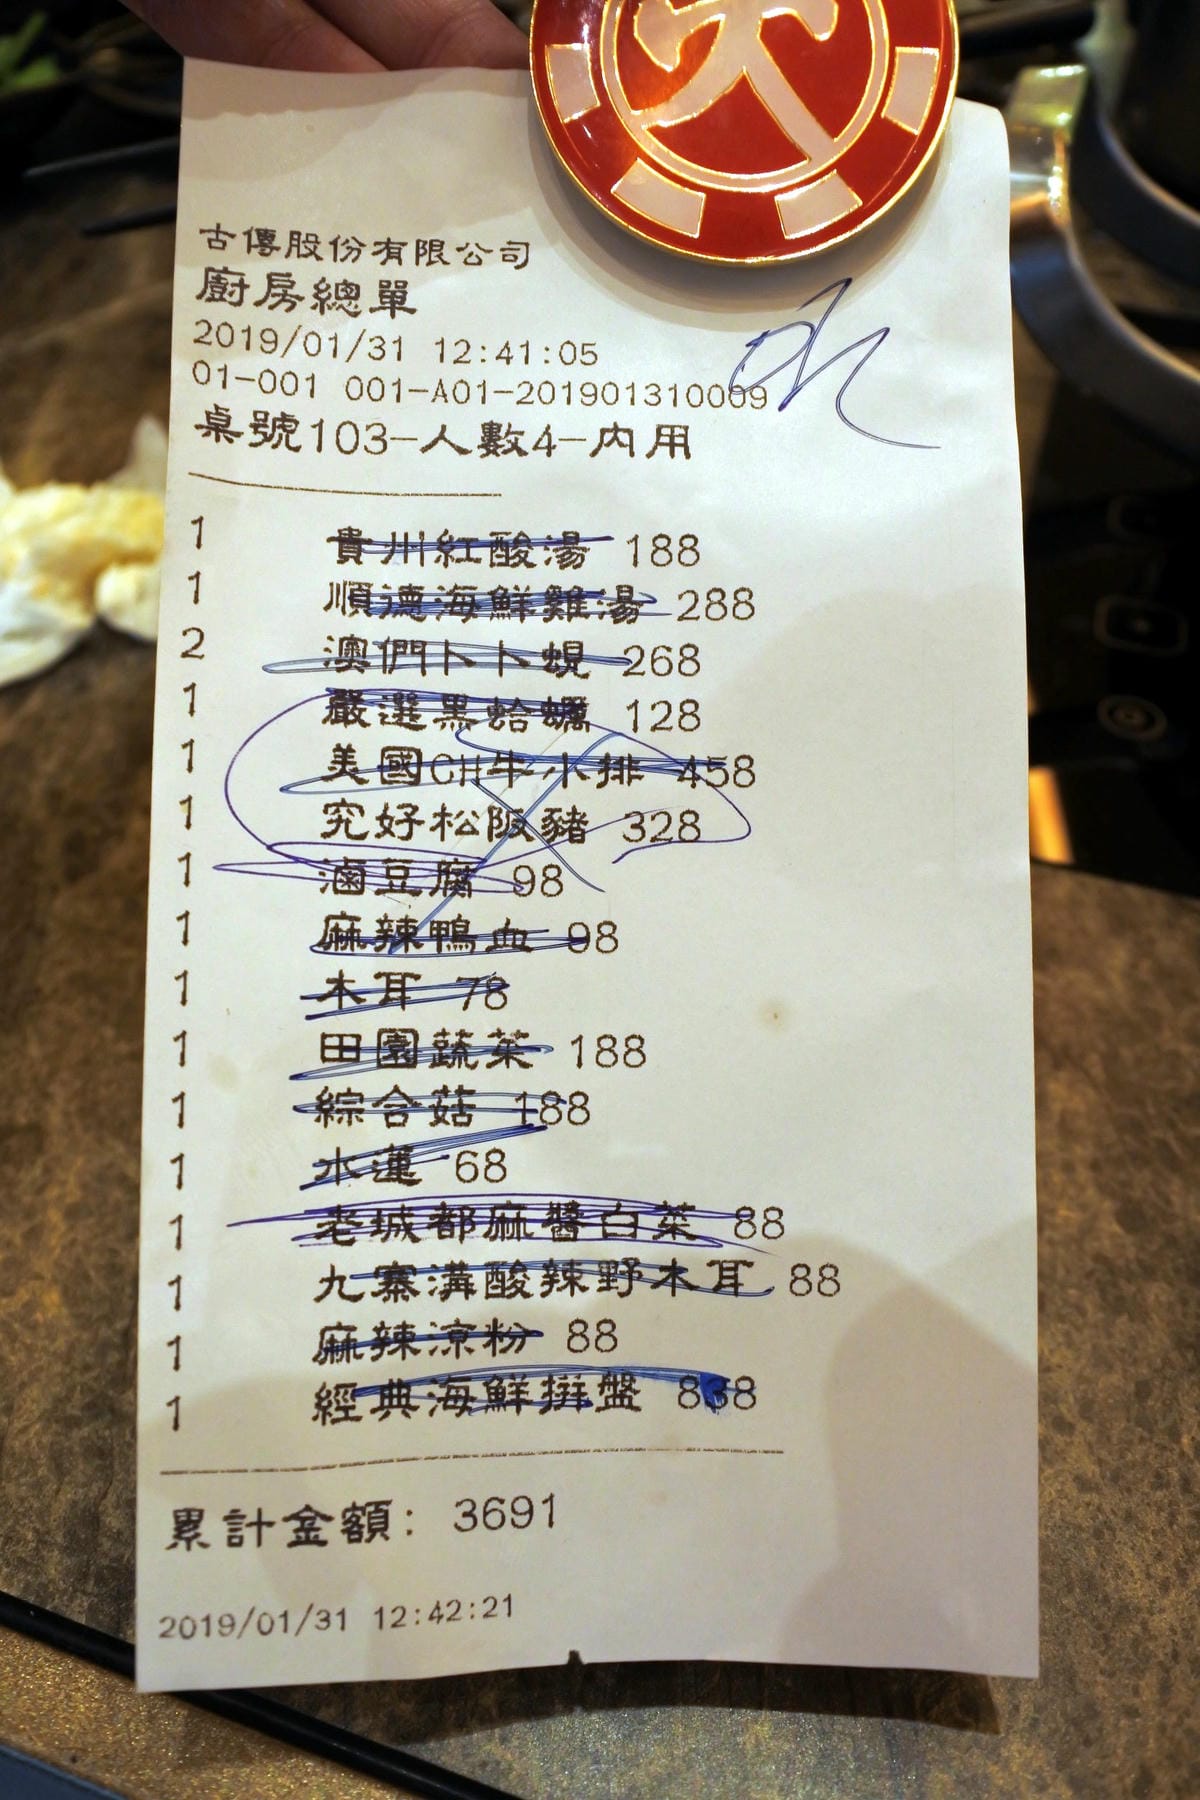 古傳股份有限公司
廚房總單
2019/01/31 12:41:05
01-001 001-A01-201901310009
桌號103-人數4-內用
1 貴州紅酸湯 188
1 順德海鮮雞湯 288
2 澳門卜卜蜆 268
1 嚴選黑蛤蠣 128
1 美國CH牛小排 458
1 究好松阪豬 328
1 滷豆腐 98
1 麻辣鴨血 98
1 木耳 78
1 田園蔬菜 188
1 綜合菇 188
1 水蓮 68
1 老城都麻醬白菜 88
1 九寨溝酸辣野木耳 88
1 麻辣涼粉 88
1 經典海鮮拼盤 838
累計金額: 3691
2019/01/31 12:42:21